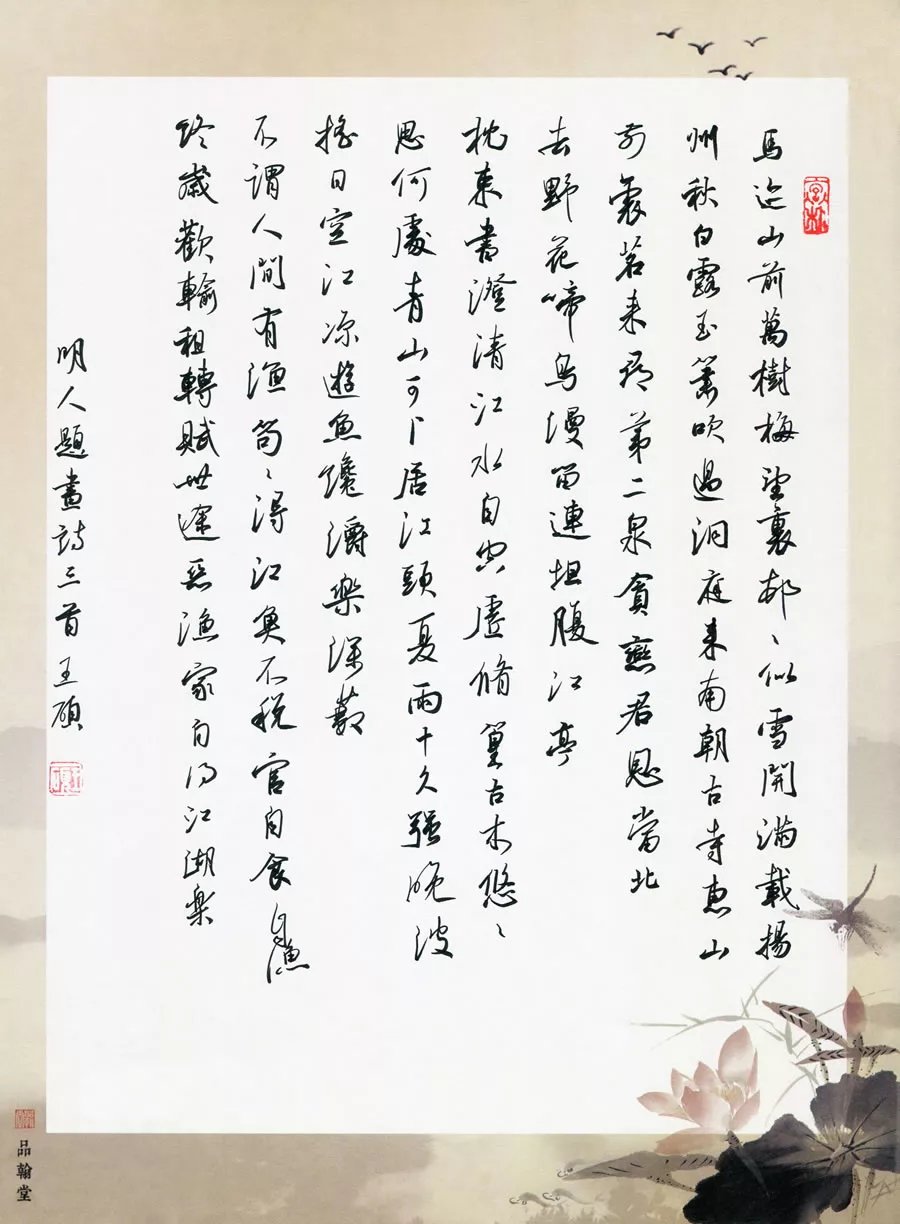 馬迹山前萬樹梅望裏邨〻似雪開滿載揚
州秋白露玉簫吹過洞庭來南朝古寺惠山
前裹茗來尋第二泉貪戀君恩當北
去野花啼鳥漫留連坦腹江亭
枕束書澄清江水自空虛脩篁古木悠〻
思何處青山可卜居江頭夏雨十強晚波
搖日空江凉遊魚潛樂深藪
不謂人間有漁笱〻得江魚不稅官自食自漁
終歲歡輸租轉賦世途惡漁家自得江湖樂
明人題畫詩三首王碩
品翰堂